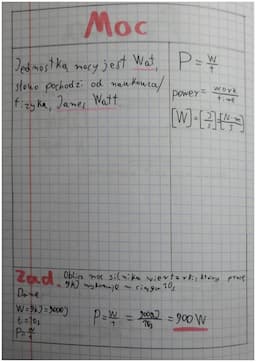 Moc
Jednostką mocy jest Wat,
słowo pochodzi od naukowca/
fizyka, James Watt
P = W/t
power = work/time
[W] = [J/s] = [N·m/s]
Zad. Oblicz moc silnika wiertarki, który pracę
9kJ wykonuje w ciągu 10s
Dane
W = 9kJ = 9000J
t = 10s
P = W/t
P = W/t = 9000J/10s = 900W